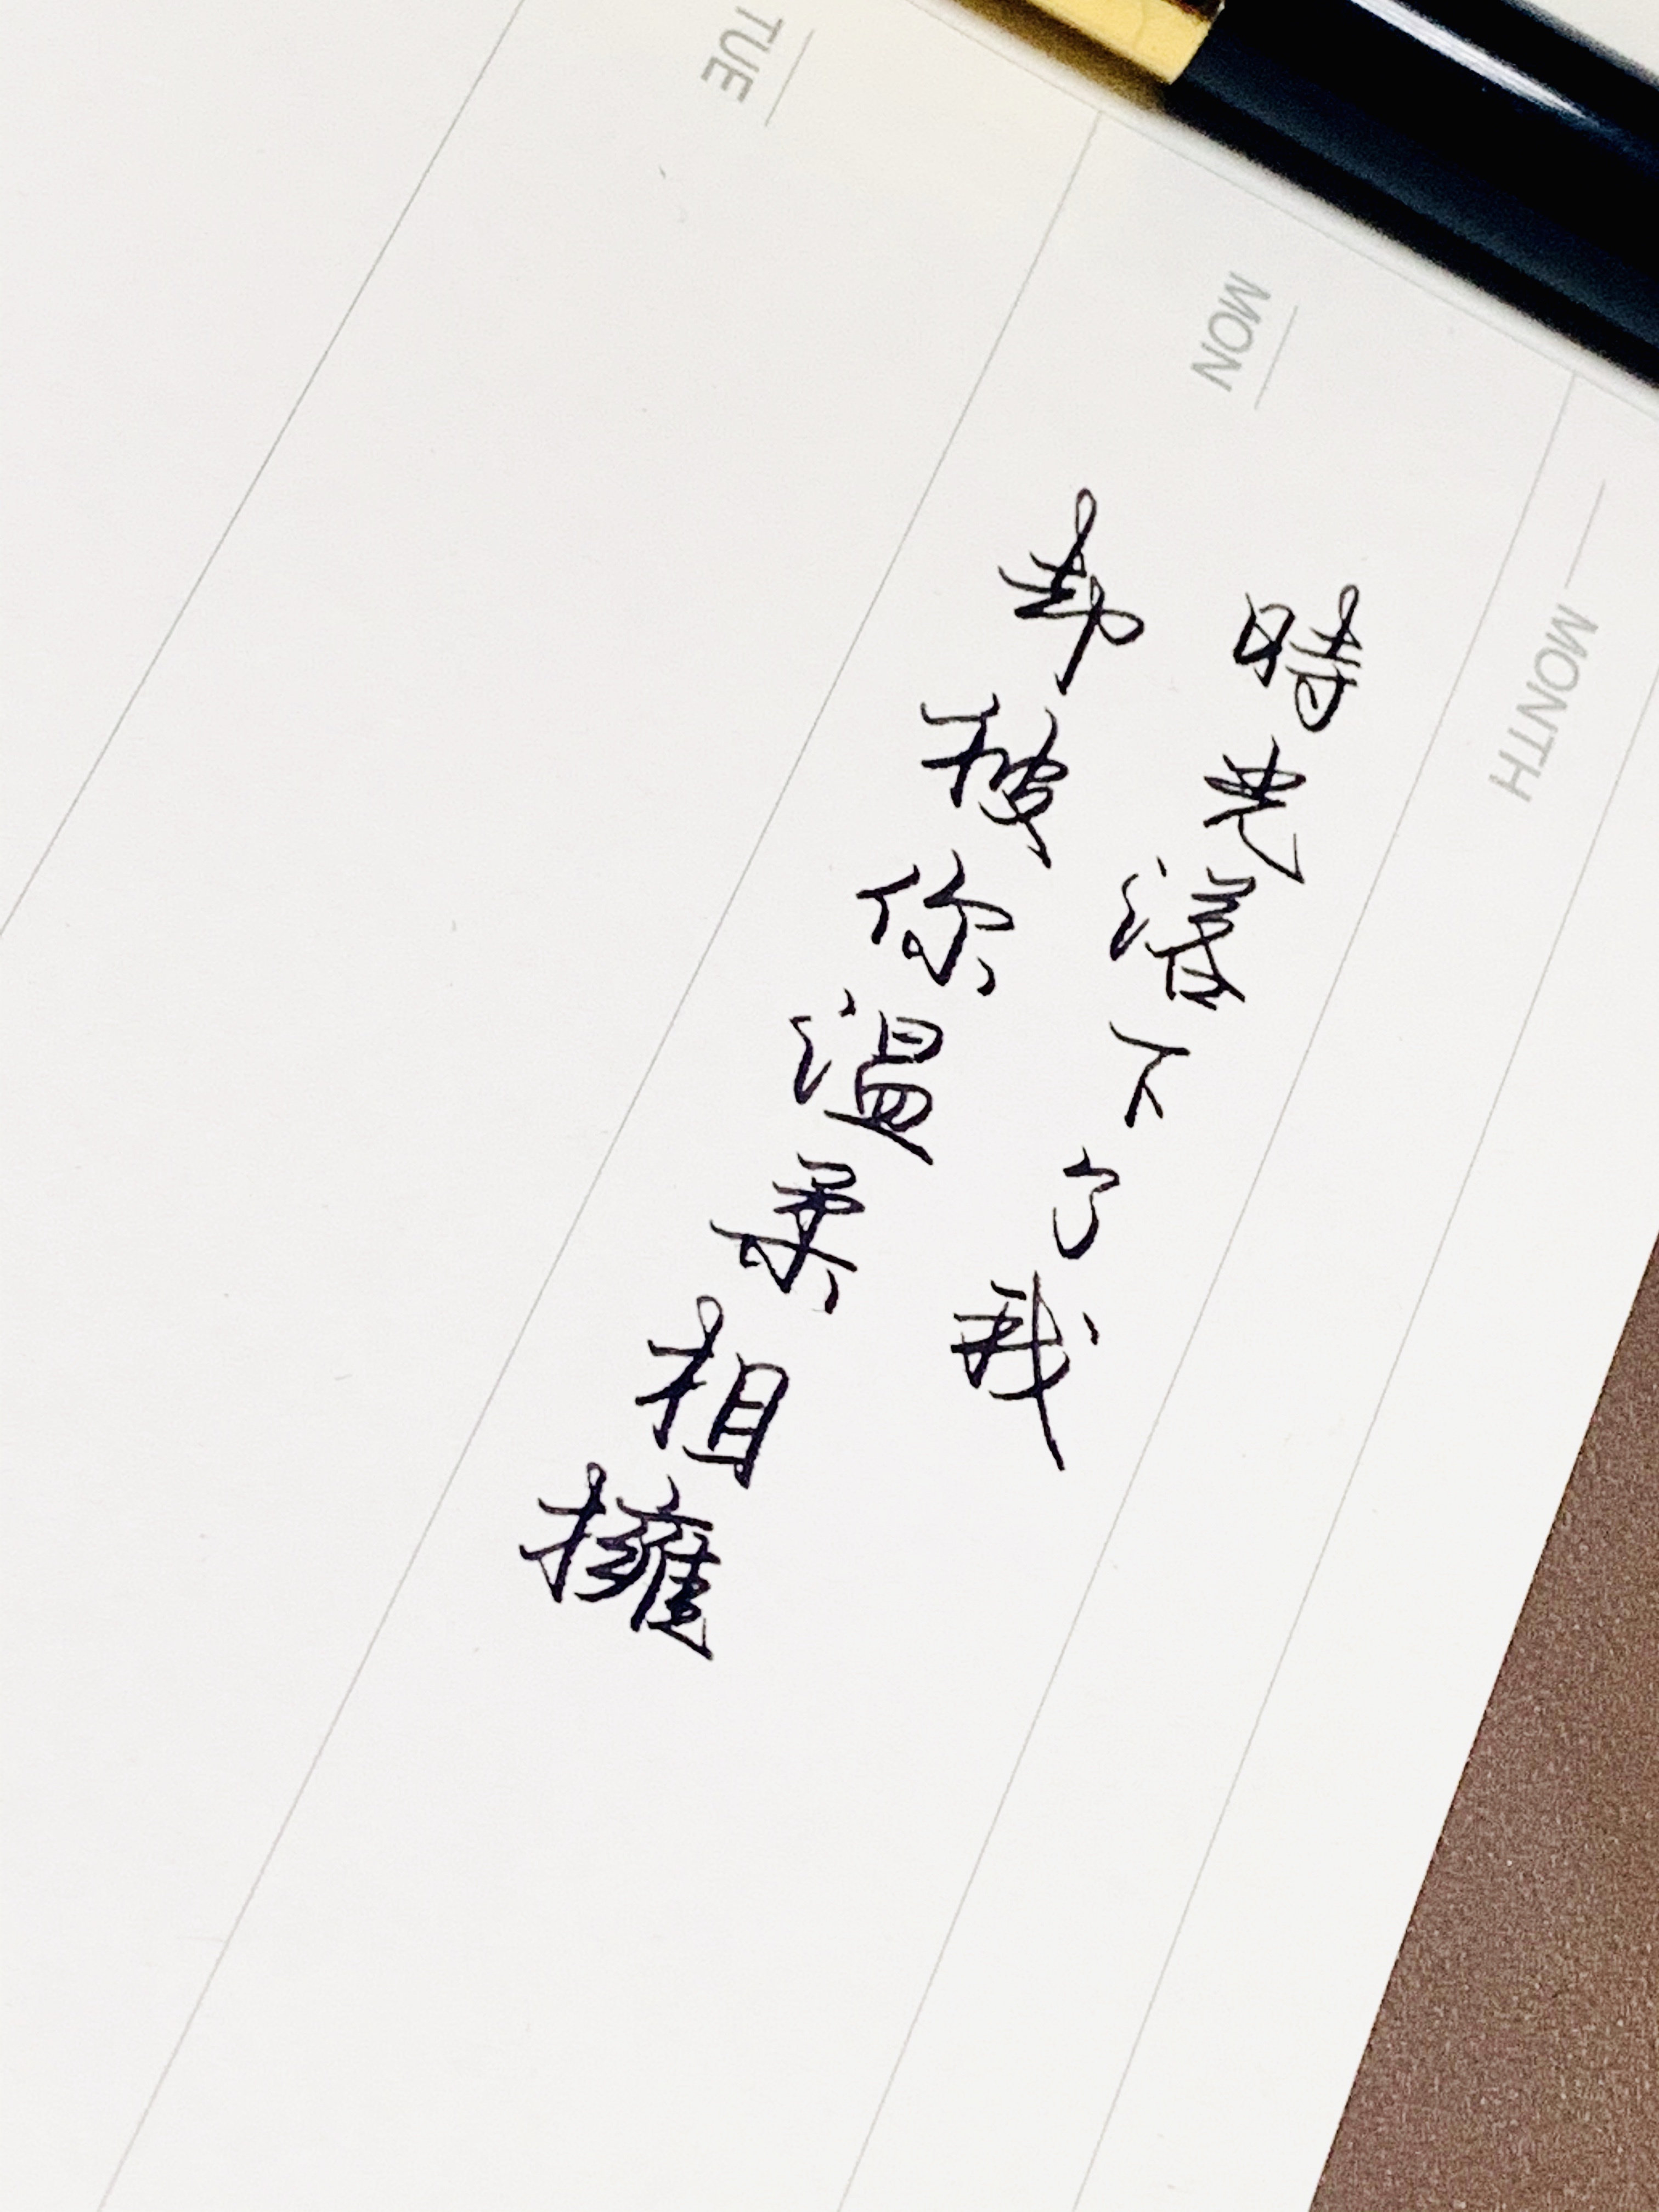 MONTH
MON
TUE
時光落下了我
却被你温柔相擁